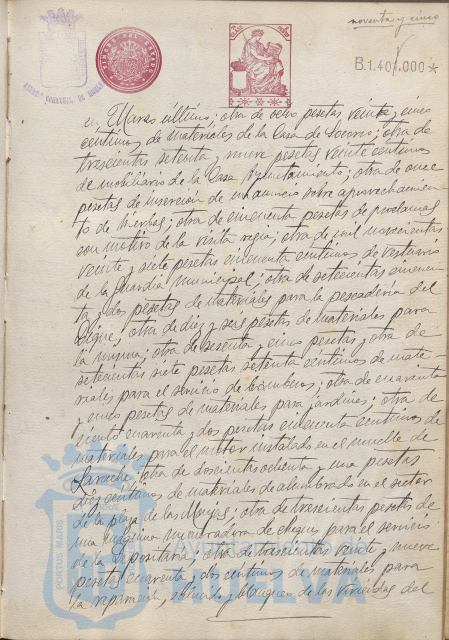 noventa y cinco
TIMBRE DEL ESTADO
B.1.401.000*
en Marzo último; otra de ocho pesetas veinte y cinco
céntimos de materiales de la Casa de Socorro; otra de
trescientas setenta y nueve pesetas veinte céntimos
de mobiliario de la Casa Ayuntamiento; otra de once
pesetas de inserción de un anuncio sobre aprovechamien
to de hierbas; otra de cincuenta pesetas de proclamas
con motivo de la visita regia; otra de mil novecientas
veinte y siete pesetas cincuenta céntimos de vestuario
de la Guardia Municipal; otra de setecientas cincuen
ta y dos pesetas de materiales para la pescadería del
Dique; otra de diez y seis pesetas de materiales para
la misma; otra de sesenta y cinco pesetas y otra de
setecientas siete pesetas setenta céntimos de mate-
riales para el servicio de bomberos; otra de cuarenta
y cinco pesetas de materiales para jardines; otra de
ciento cuarenta y dos pesetas cincuenta céntimos de
materiales para el motor instalado en el muelle de
Larache; otra de doscientas ochenta y una pesetas
diez céntimos de materiales de alumbrado en el sector
de la plaza de las Monjas; otra de trescientas pesetas de
una máquina numeradora de cheques para el servicio
de la Depositaría; otra de trescientas veinte y nueve
pesetas cuarenta y dos céntimos de materiales para
la reparación, y blanqueo de las viviendas del
PORTUS MARIS
HUELVA